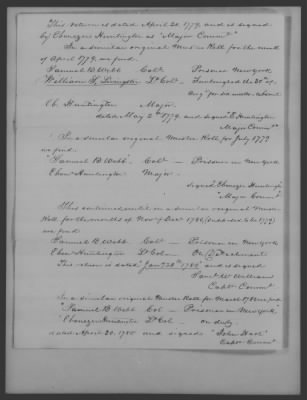 This return is dated April 20. 1779, and is signed
by Ebenezer Huntington as "Major Commt"
In a similar original Muster Roll for the month
of April 1779, we find.
Samuel B. Webb Colo. Prisoner New York
William S. Livingston Lt Col. Furloughed the 20th of
Aug for six weeks
Eb. Huntington Major.
dated May 2d 1779. and signed E Huntington
Major Commt
In a similar original Muster Roll for July 1779
we find.
"Samuel B. Webb" Colo — Prisoner in New York
Eben Huntington Major.
Signed, Ebenezer Huntington
"Major Commt"
This continued until, in a similar original Muster
Roll for the months of Nov & Dec 1780
we find
Samuel B. Webb Colo — Prisoner in New York
Eben Huntington Lt Colo — On Detachment
This return is dated "Jany 28th 1780" and is signed
Saml W Williams
Capt Commt
In a similar original Muster Roll for March 1780 we find
"Samuel B. Webb Col — Prisoner in New York,
"Ebenezer Huntington Lt Col — on duty
dated April 20. 1780 and signed "John Hart"
Capt Commt